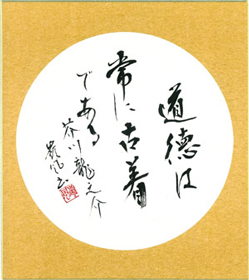 道徳は
常に古着
である
芥川龍之介